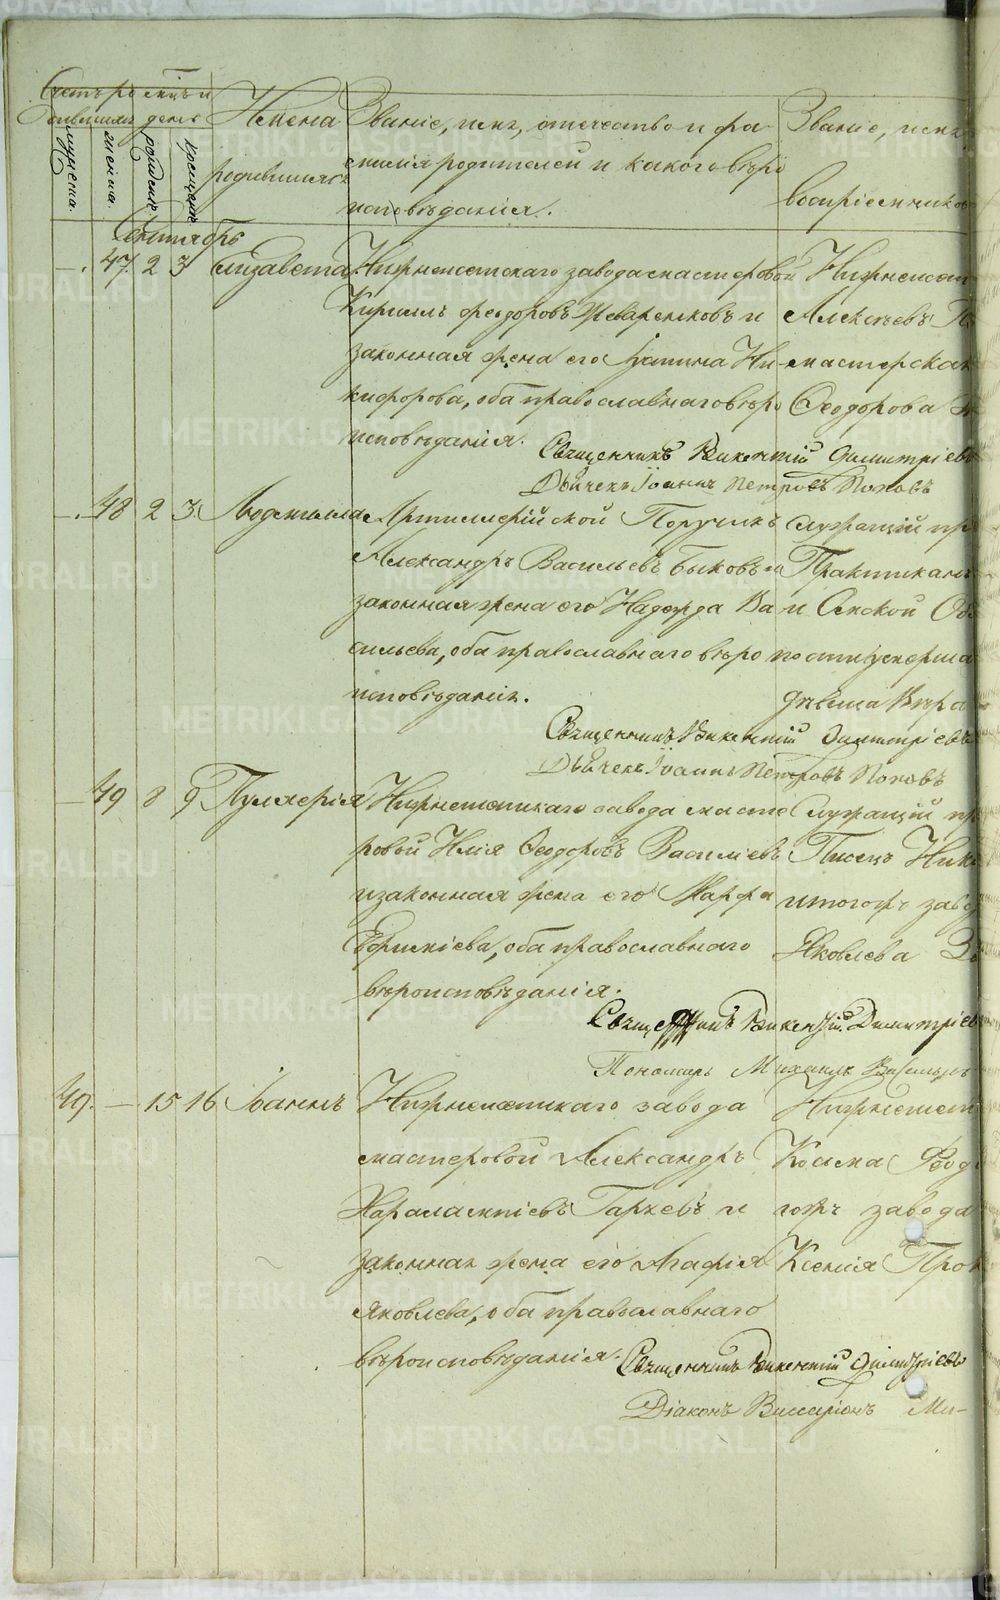 Счетъ ро
мцъ и
день
Имена
родившихся
Званіе, имя, отечество и фа
милія родителей и какого вѣро
исповѣданія.
Званіе, имя,
воспріемниковъ
мужеска. женска. рожден. крещен.
Сентябрь
47 2 3 Елизавета
Нижнеисетскаго завода мастеровой
Кириллъ Феодоровъ и
законная жена его Ни-
кифорова, оба православнаго вѣро
исповѣданія.
Нижнеисет
Алексѣевъ
мастерская
Феодорова
Священникъ Викентій Димитріевъ
Дьячекъ Іоаннъ Петровъ Поповъ
48 2 3 Людмилла
Артиллерійской Поручикъ
Александръ Васильевъ Быковъ и
законная жена его Надежда Ва
сильева, оба православнаго вѣро
исповѣданія.
служащій пр
Практикантъ
и
дѣвица Вѣра
Священникъ Викентій Димитріевъ
Дьячекъ Іоаннъ Петровъ Поповъ
49 8 9 Пульхерія
Нижнеисетскаго завода масте
ровой Илія Феодоровъ Василіевъ
и законная жена его Марфа
оба православнаго
вѣроисповѣданія.
служащій пр
Писецъ Ник
и тогожъ завод
Яковлева
Священникъ Викентій Димитріев
Пономарь Михаилъ
49. — 15 16 Іоаннъ
Нижнеисетскаго завода
мастеровой Александръ
Харалампіевъ и
законная жена его Агафія
Яковлева, оба православнаго
вѣроисповѣданія.
Нижнеисет
Косма Феод
гожъ завода
Ксенія Прок
Священникъ Викентій Димитріевъ
Діаконъ Виссаріонъ Ми-
METRIKI.GASO-URAL.RU